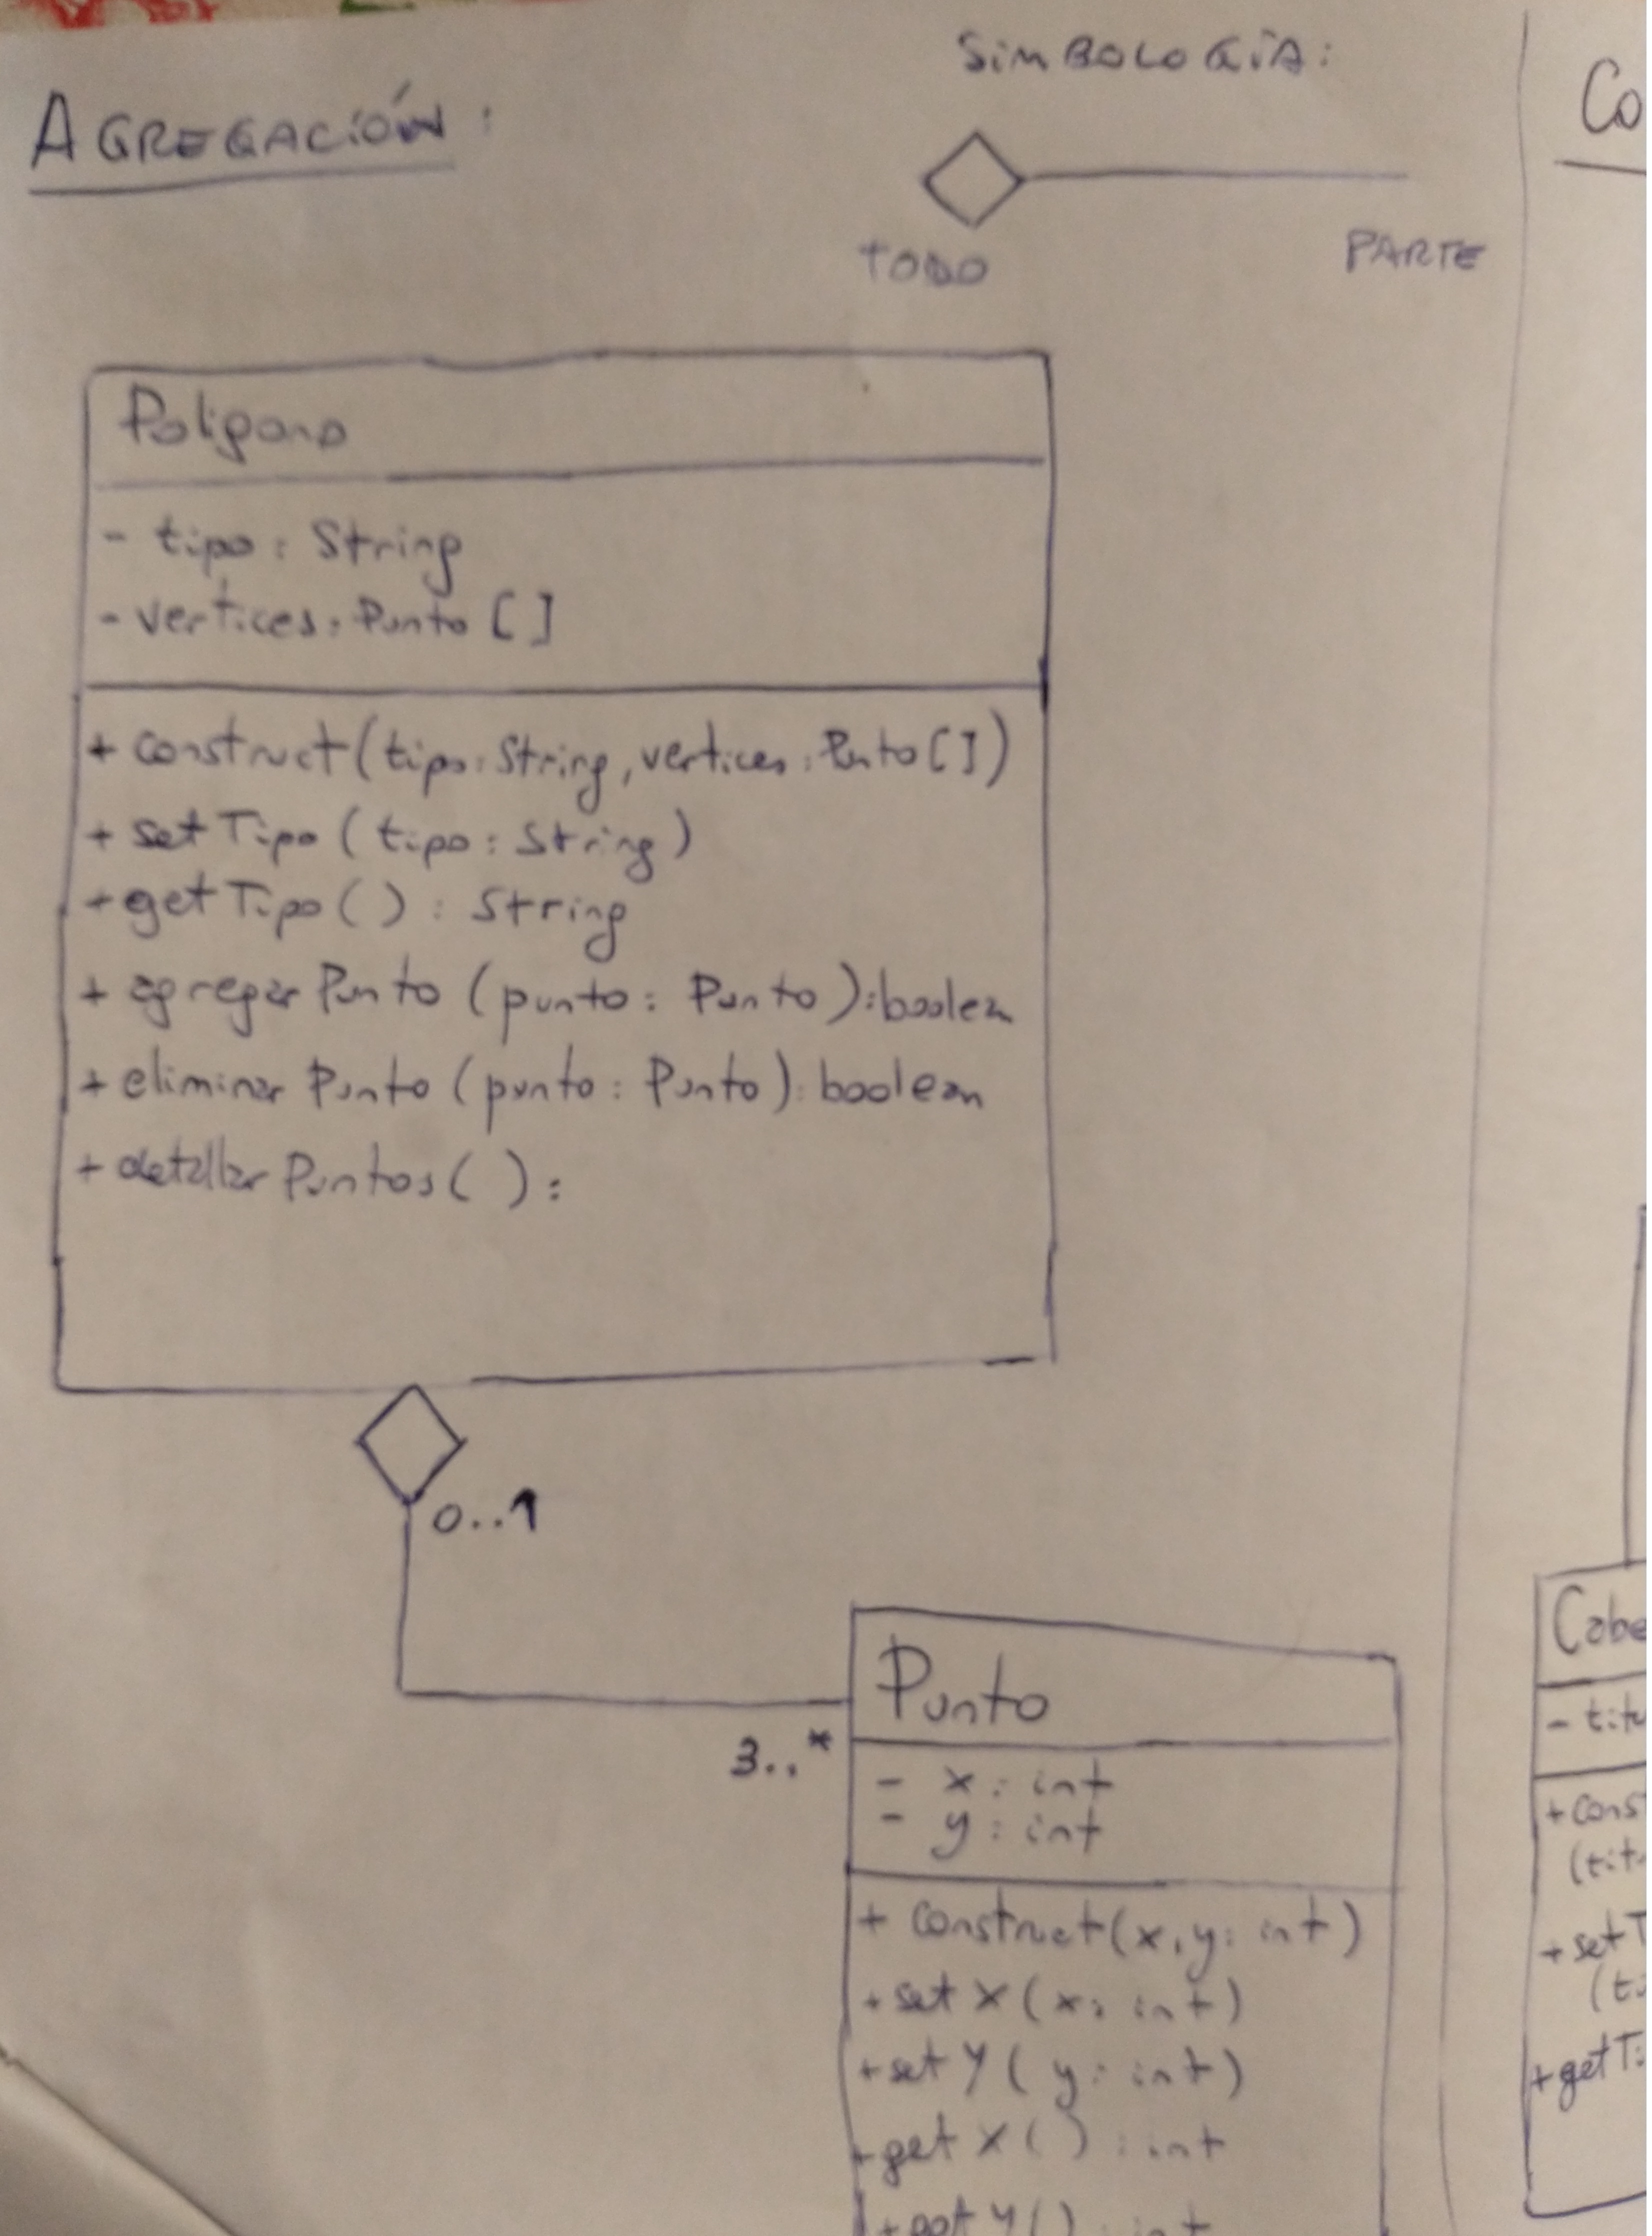 AGREGACIÓN:
SIMBOLOGÍA:
TODO
PARTE
Poligono
- tipo: String
- vertices: Punto []
+ construct(tipo: String, vertices: Punto[])
+ setTipo (tipo: String)
+ getTipo(): String
+ agregar Punto (punto: Punto): boolean
+ eliminar Punto (punto: Punto): boolean
+ detallar Puntos():
0..1
3..*
Punto
- x: int
- y: int
+ construct(x, y: int)
+ set X (x: int)
+ set Y (y: int)
+ get X (): int
+ get Y (): int
Co
Cabe
- titu
+ cons
(tit
+ set T
(ti
+ get Ti